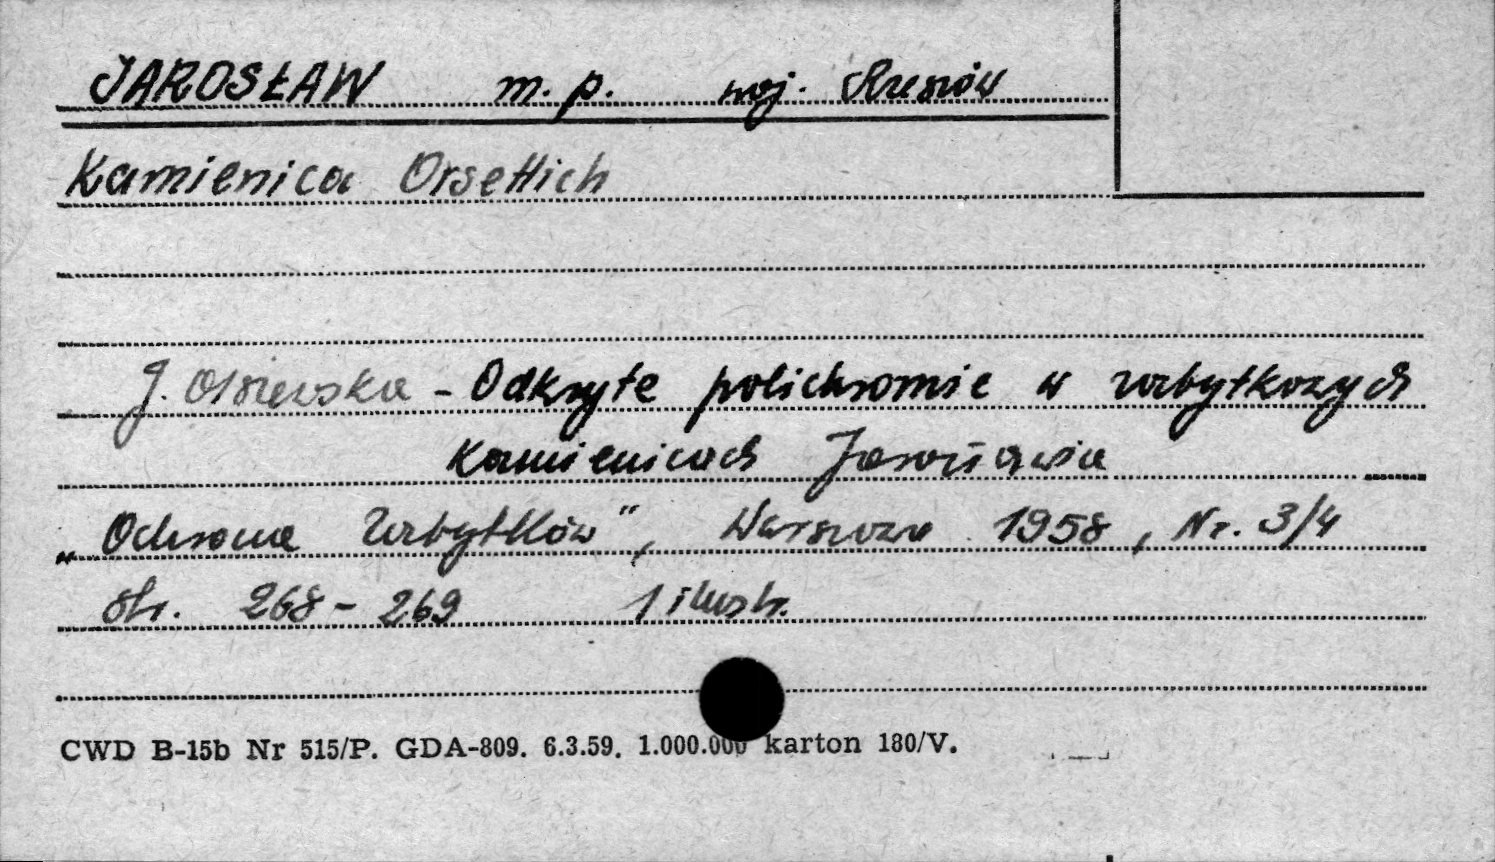 JAROSŁAW m. p. woj. Rzeszów
Kamienica Orsettich
J. - Odkryte polichromie w zabytkowych
kamienicach Jarosławia
„Ochrona Zabytków", Warszawa 1958, Nr. 3/4
str. 268 - 269 1 ilustr.
CWD B-15b Nr 515/P. GDA-809. 6.3.59. 1.000.000 karton 180/V.